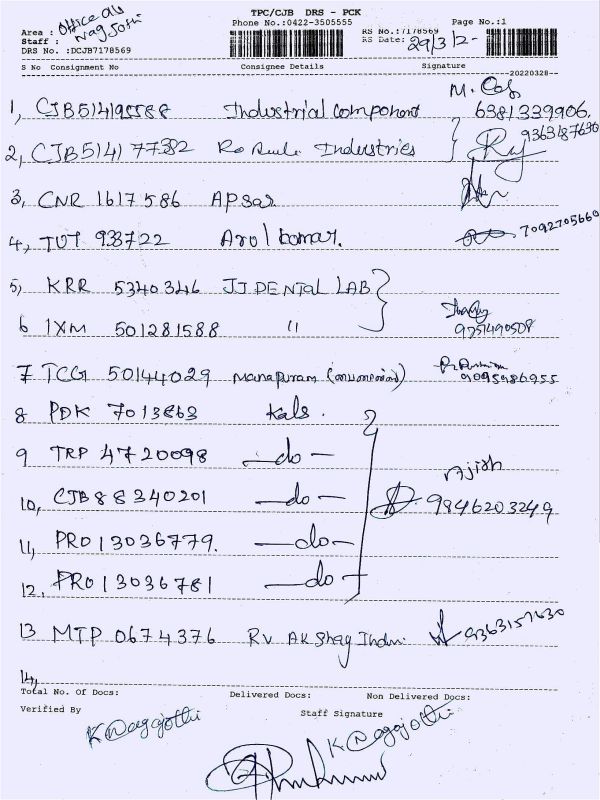 TPC/CJB DRS - PCK
Office Au
Area : Nagjothi
Phone No.:0422-3505555
RS No.:7178569
Page No.:1
Staff :
RS Date: 29/3/2-
DRS No. :DCJB7178569
S No Consignment No Consignee Details Signature
20220328
1, CJB514195588 Industrial component 6381339906.
2, CJB514177382 Industries 9363187630
3, CNR 1617586 Apsar
4, TUT 933722 Arul kumar. 7092705660
5, KRR 5340346 JJ DENTAL LAB
6 IXM 501281588 " 9751490508
7 TCG 50144029 Manapuram 9095986955
8 PDK 7013863 Kals.
9 TRP 4720098 —do—
Ajith
10, CJB88340201 —do— 9846203249
11, PRO13036779. —do—
12. PRO13036781 —do—
13 MTP 0674376 RV Akshay Indu 9363157630
14,
Total No. Of Docs: Delivered Docs: Non Delivered Docs:
Verified By K Nagajothi
Staff Signature K Nagajothi